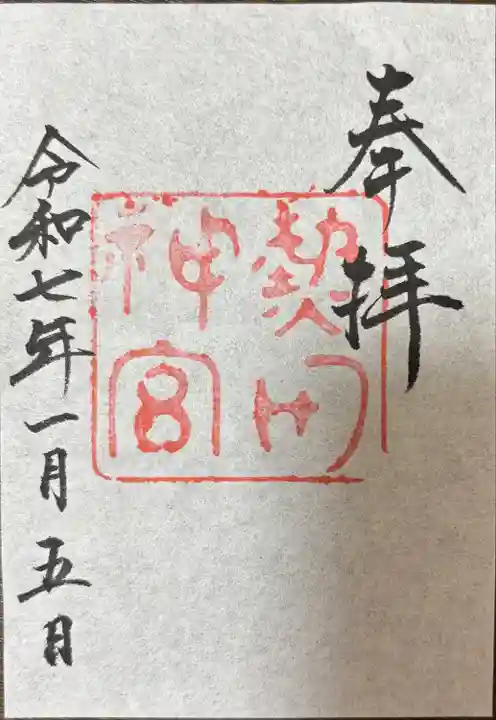 奉拝
熱田
神宮
令和七年一月五日